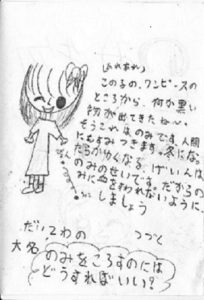 (ふれあれ)
この子の、ワンピースの
ところから、何か黒い
物が出てきたな〜。
そうこれはのみです。人間
にもすみつきます。冬にな
たらかゆくなる、げいんは
のみのせいです。だからの
みに血をすわれないように、
しましょう
つづく
だい2わの
大名
のみをころすのには
どうすればいい?